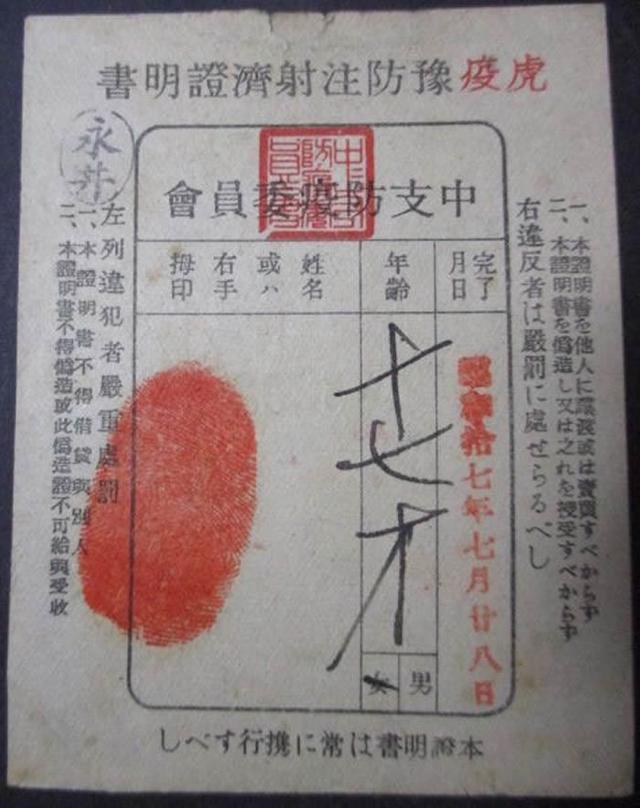 虎疫豫防注射濟證明書
一、本證明書を他人に讓渡或は賣買すべからず
二、本證明書を僞造し又は之れを授受すべからず
右違反者は嚴罰に處せらるべし
中支防疫委員會
完了月日
昭和拾七年七月廿八日
年齡
十七才
男
女
姓名
或ハ
右手
拇印
永井
左列違犯者嚴重處罰
一、本證明書不得借貸與別人
二、本證明書不得僞造或此僞造證不可給與受收
本證明書は常に携行すべし